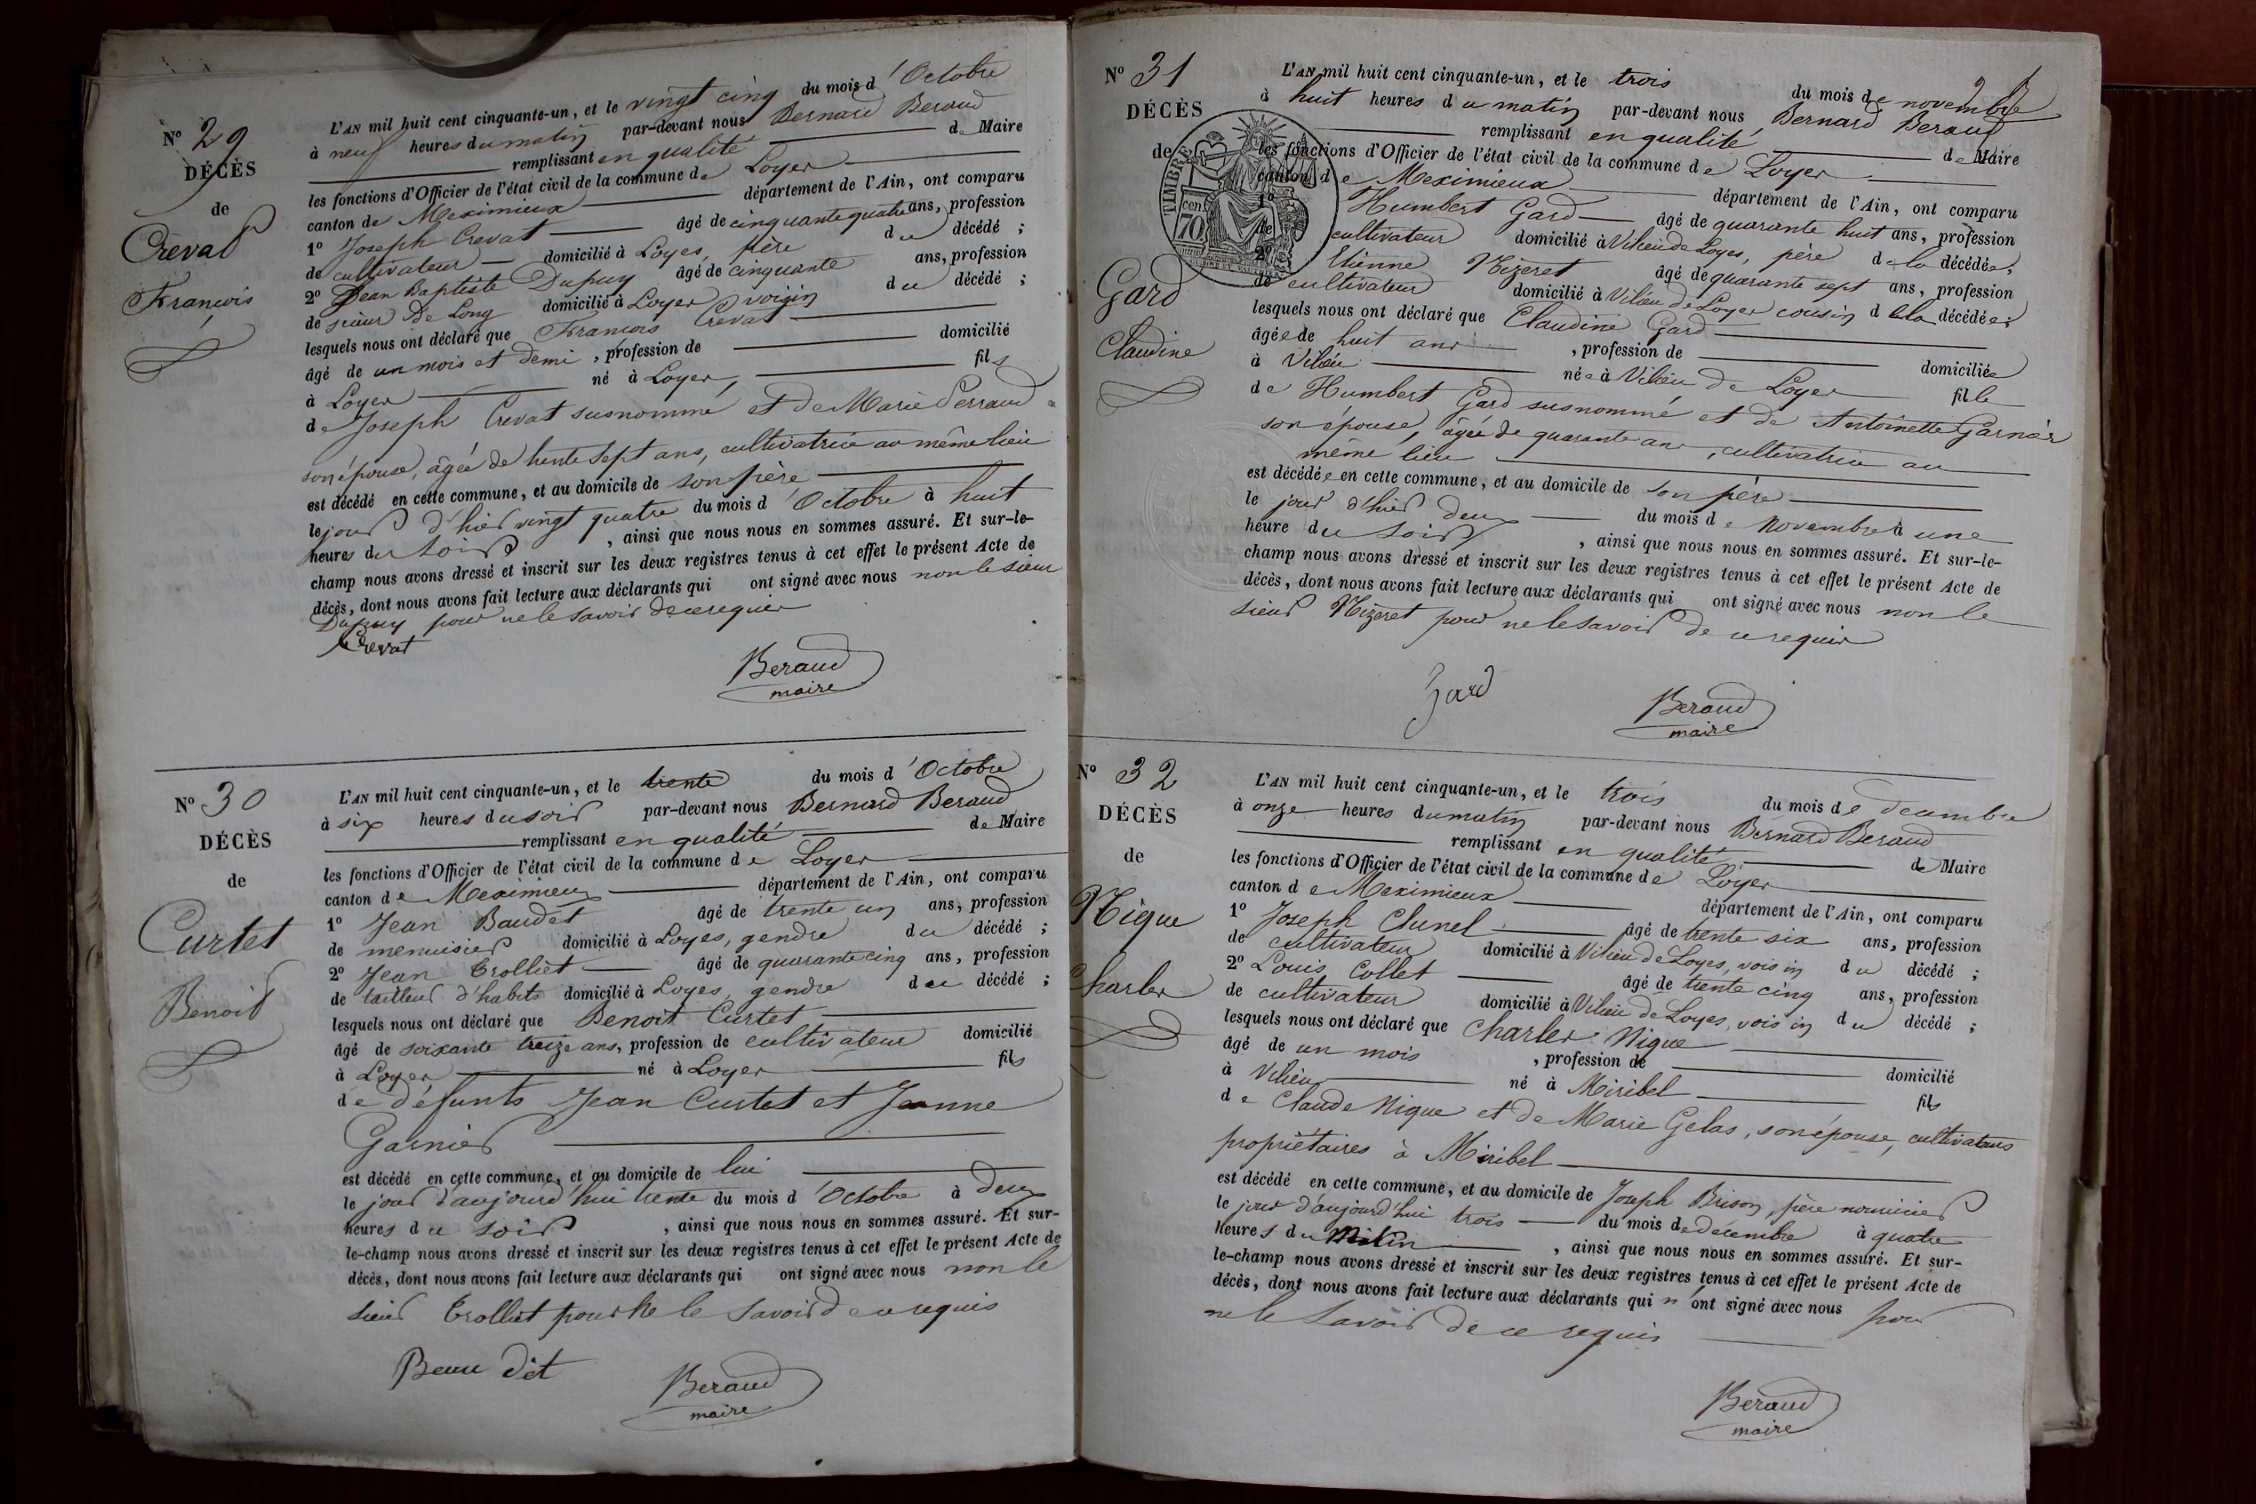 N° 29
DÉCÈS
de
Crevat
François
L'AN mil huit cent cinquante-un, et le vingt cinq du mois d'Octobre
à neuf heures du matin par-devant nous Bernard Beraud
remplissant en qualité de Maire
les fonctions d'Officier de l'état civil de la commune de Loyes
canton de Meximieux département de l'Ain, ont comparu
1° Joseph Crevat âgé de cinquante quatre ans, profession
de cultivateur domicilié à Loyes, père du décédé ;
2° Jean Baptiste Dupuy âgé de cinquante ans, profession
de scieur de long domicilié à Loyes, voisin du décédé ;
lesquels nous ont déclaré que François Crevat
âgé de un mois et demi, profession de domicilié
à Loyes né à Loyes, fils
de Joseph Crevat susnommé et de Marie Perraud
son épouse, âgée de trente sept ans, cultivatrice au même lieu
est décédé en cette commune, et au domicile de son père
le jour d'hier vingt quatre du mois d'Octobre à huit
heures du soir, ainsi que nous nous en sommes assuré. Et sur-le-
champ nous avons dressé et inscrit sur les deux registres tenus à cet effet le présent Acte de
décès, dont nous avons fait lecture aux déclarants qui ont signé avec nous non le sieur
Dupuy pour ne le savoir de ce requis
Crevat
Beraud
maire
N° 30
DÉCÈS
de
Curtet
Benoit
L'AN mil huit cent cinquante-un, et le trente du mois d'Octobre
à six heures du soir par-devant nous Bernard Beraud
remplissant en qualité de Maire
les fonctions d'Officier de l'état civil de la commune de Loyes
canton de Meximieux département de l'Ain, ont comparu
1° Jean Baudet âgé de trente un ans, profession
de menuisier domicilié à Loyes, gendre du décédé ;
2° Jean Trolliet âgé de quarante cinq ans, profession
de tailleur d'habits domicilié à Loyes, gendre du décédé ;
lesquels nous ont déclaré que Benoit Curtet
âgé de soixante treize ans, profession de cultivateur domicilié
à Loyes né à Loyes fils
de défunts Jean Curtet et Jeanne
Garnier
est décédé en cette commune, et au domicile de lui
le jour d'aujourd'hui trente du mois d'Octobre à deux
heures du soir, ainsi que nous nous en sommes assuré. Et sur-
le-champ nous avons dressé et inscrit sur les deux registres tenus à cet effet le présent Acte de
décès, dont nous avons fait lecture aux déclarants qui ont signé avec nous non le
sieur Trolliet pour ne le savoir de ce requis
Beau dit
Beraud
maire
N° 31
DÉCÈS
de
TIMBRE
70 cent
Gard
Claudine
L'AN mil huit cent cinquante-un, et le trois du mois de novembre
à huit heures du matin par-devant nous Bernard Beraud
remplissant en qualité de Maire
les fonctions d'Officier de l'état civil de la commune de Loyes
canton de Meximieux département de l'Ain, ont comparu
1° Humbert Gard âgé de quarante huit ans, profession
de cultivateur domicilié à Vilieu de Loyes, père de la décédée ;
2° Etienne Nizeret âgé de quarante sept ans, profession
de cultivateur domicilié à Vilieu de Loyes cousin de la décédée ;
lesquels nous ont déclaré que Claudine Gard
âgée de huit ans, profession de domiciliée
à Vilieu née à Vilieu de Loyes fille
de Humbert Gard susnommé et de Antoinette Garnier
son épouse, âgée de quarante ans, cultivatrice au
même lieu
est décédée en cette commune, et au domicile de son père
le jour d'hier deux du mois de Novembre à une
heure du soir, ainsi que nous nous en sommes assuré. Et sur-le-
champ nous avons dressé et inscrit sur les deux registres tenus à cet effet le présent Acte de
décès, dont nous avons fait lecture aux déclarants qui ont signé avec nous non le
sieur Nizeret pour ne le savoir de ce requis
Gard
Beraud
maire
N° 32
DÉCÈS
de
Nique
Charles
L'AN mil huit cent cinquante-un, et le trois du mois de décembre
à onze heures du matin par-devant nous Bernard Beraud
remplissant en qualité de Maire
les fonctions d'Officier de l'état civil de la commune de Loyes
canton de Meximieux département de l'Ain, ont comparu
1° Joseph Chunel âgé de trente six ans, profession
de cultivateur domicilié à Vilieu de Loyes, voisin du décédé ;
2° Louis Collet âgé de trente cinq ans, profession
de cultivateur domicilié à Vilieu de Loyes, voisin du décédé ;
lesquels nous ont déclaré que Charles Nique
âgé de un mois, profession de domicilié
à Vilieu né à Miribel fils
de Claude Nique et de Marie Gelas, son épouse, cultivateurs
propriétaires à Miribel
est décédé en cette commune, et au domicile de Joseph Brison, père nourricier
le jour d'aujourd'hui trois du mois de décembre à quatre
heures du matin, ainsi que nous nous en sommes assuré. Et sur-
le-champ nous avons dressé et inscrit sur les deux registres tenus à cet effet le présent Acte de
décès, dont nous avons fait lecture aux déclarants qui n'ont signé avec nous pour
ne le savoir de ce requis
Beraud
maire